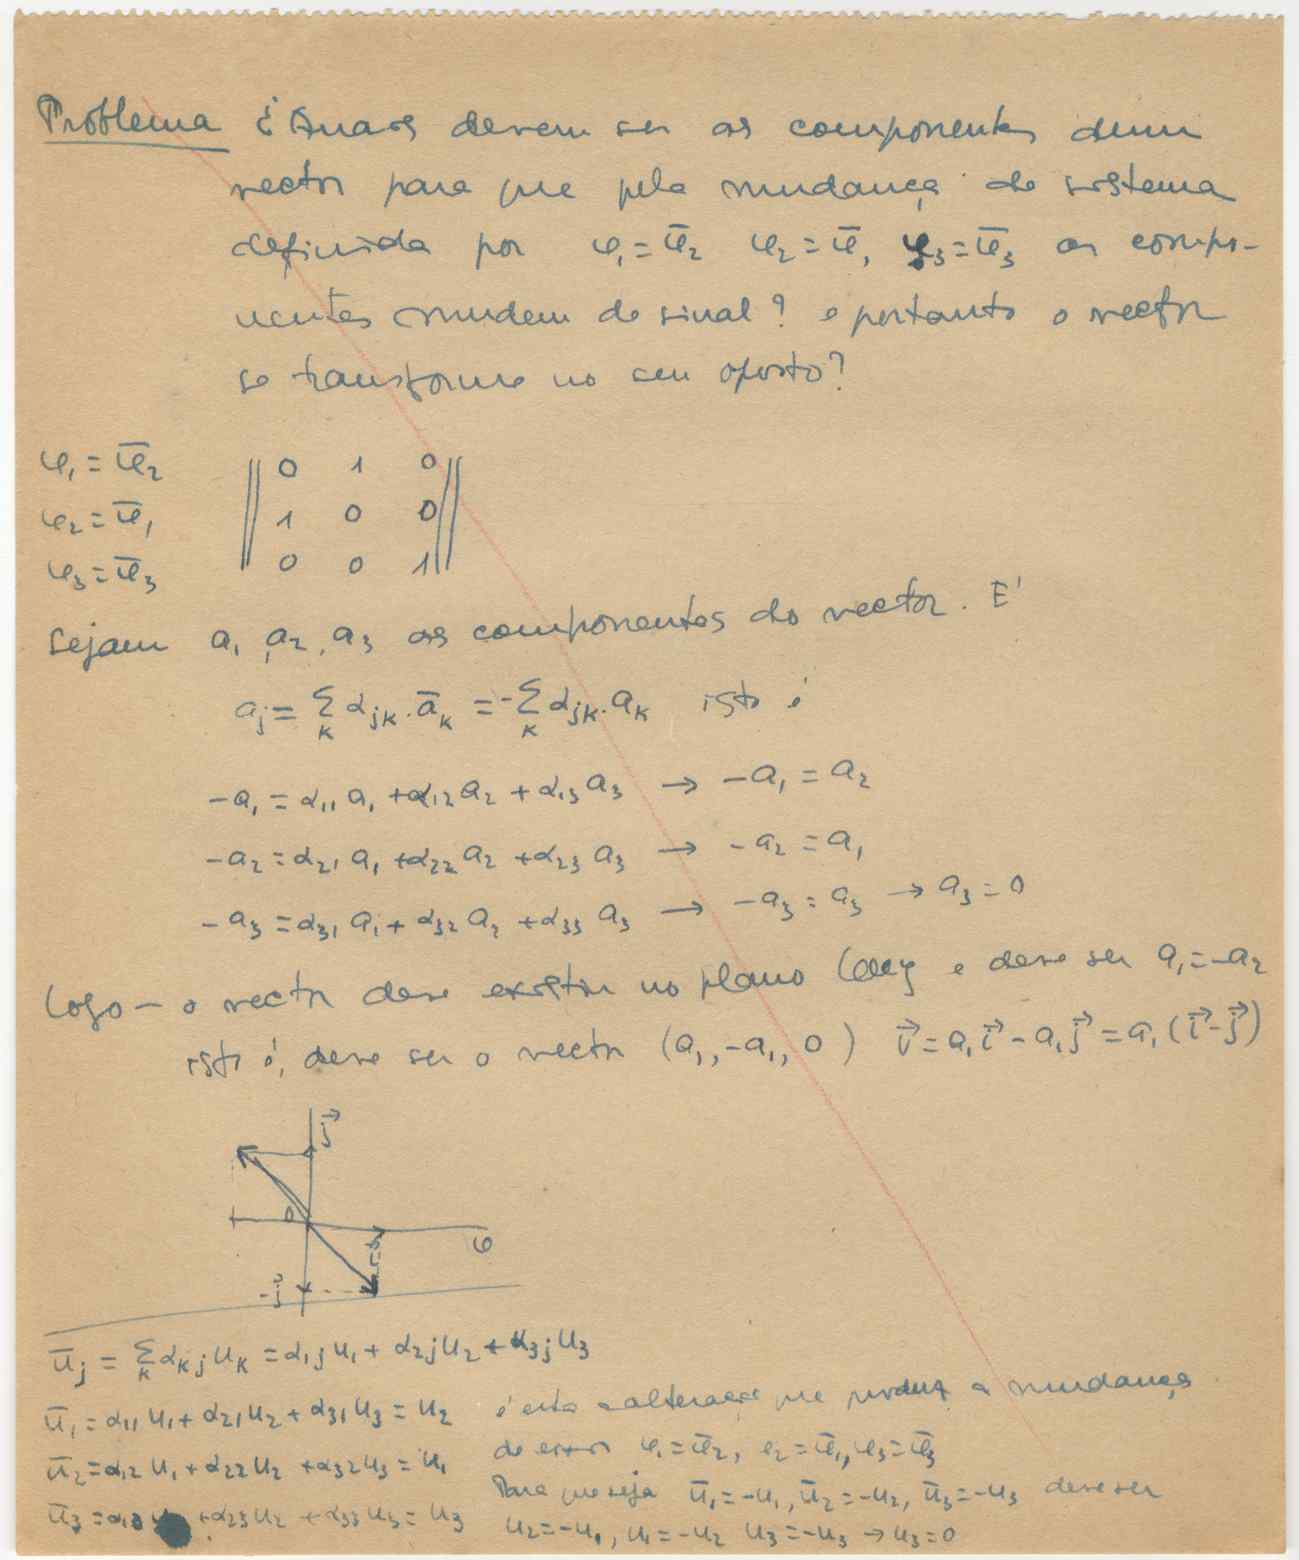 Problema ¿Quais devem ser as componentes dum
vector para que pela mudança de sistema
definida por φ₁=φ̄₂ φ₂=φ̄₁ φ₃=φ̄₃ as compo-
nentes mudem de sinal? e portanto o vector
se transforme no seu oposto?
φ₁=φ̄₂ || 0 1 0 ||
φ₂=φ̄₁ || 1 0 0 ||
φ₃=φ̄₃ || 0 0 1 ||
Sejam a₁, a₂, a₃ as componentes do vector. E'
aⱼ = Σₖ αⱼₖ.āₖ = -Σₖ αⱼₖ.aₖ isto é
-a₁ = α₁₁a₁ + α₁₂a₂ + α₁₃a₃ → -a₁ = a₂
-a₂ = α₂₁a₁ + α₂₂a₂ + α₂₃a₃ → -a₂ = a₁
-a₃ = α₃₁a₁ + α₃₂a₂ + α₃₃a₃ → -a₃ = a₃ → a₃ = 0
Logo — o vector deve existir no plano Oxy e deve ser a₁=-a₂
isto é, deve ser o vector (a₁, -a₁, 0) v⃗ = a₁i⃗ - a₁j⃗ = a₁(i⃗-j⃗)
j⃗
0
-j⃗
ūⱼ = Σₖ αₖⱼuₖ = α₁ⱼu₁ + α₂ⱼu₂ + α₃ⱼu₃
ū₁ = α₁₁u₁ + α₂₁u₂ + α₃₁u₃ = u₂
ū₂ = α₁₂u₁ + α₂₂u₂ + α₃₂u₃ = u₁
ū₃ = α₁₃ + α₂₃u₂ + α₃₃u₃ = u₃
é esta a alteração que produz a mudança
de eixos φ₁=φ̄₂, φ₂=φ̄₁, φ₃=φ̄₃
Para que seja ū₁=-u₁, ū₂=-u₂, ū₃=-u₃ deve ser
u₂=-u₁, u₁=-u₂ u₃=-u₃ → u₃=0